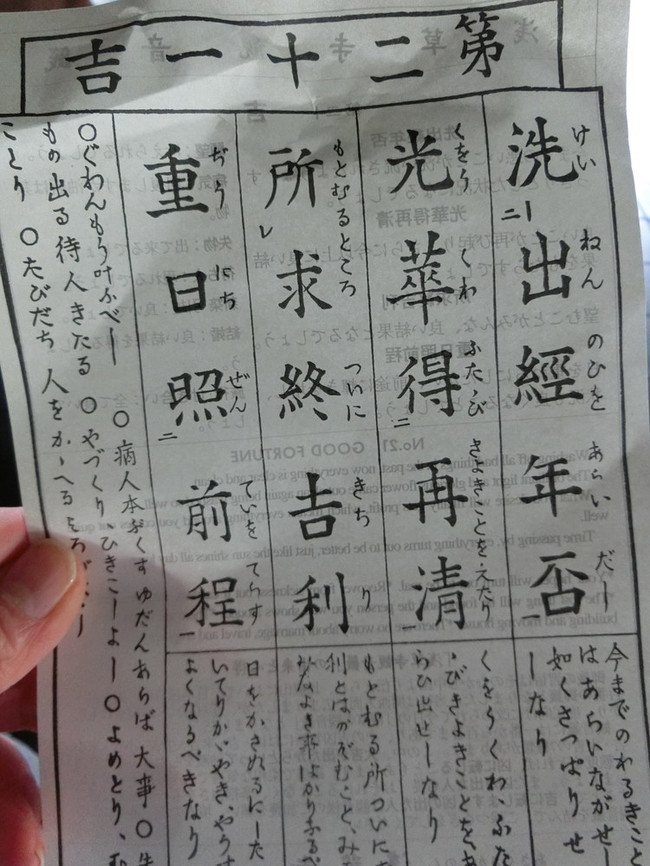 第二十一吉
洗出經年否
けいねんのひをあらいだし
今までのわるきこと
はあらいながせし
如くさつぱりせ
しなり
光華得再清
くをうくわふたゝびきよきことをえたり
くをうくわ、ふた
ゝびきよきことをゑ
らひ出せしなり
所求終吉利
もとむるところついにきちり
もとむる所ついにき
利とはのぞむこと、みな
よき事ばかりあるべ
重日照前程
ぢうにちぜんていをてらす
日をかさぬるにした
いてりかゞやき、やうす
よくなるべきなり
〇ぐわんもう叶ふべし 〇病人本ぶくすゆだんあらば大事 〇失
もの出る 待人きたる 〇やづくりひきこしよし 〇よめとり、む
ことり 〇たびだち 人をかゝへるよろづよし